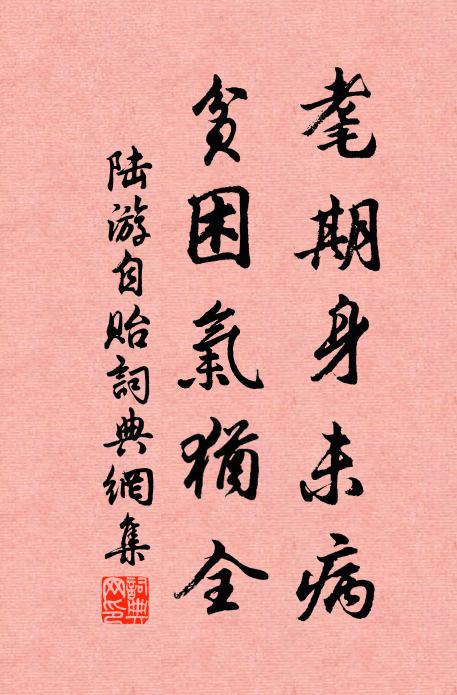 耄期身未病
貧困氣猶全
陆游自貽詞典網集
詞典網印